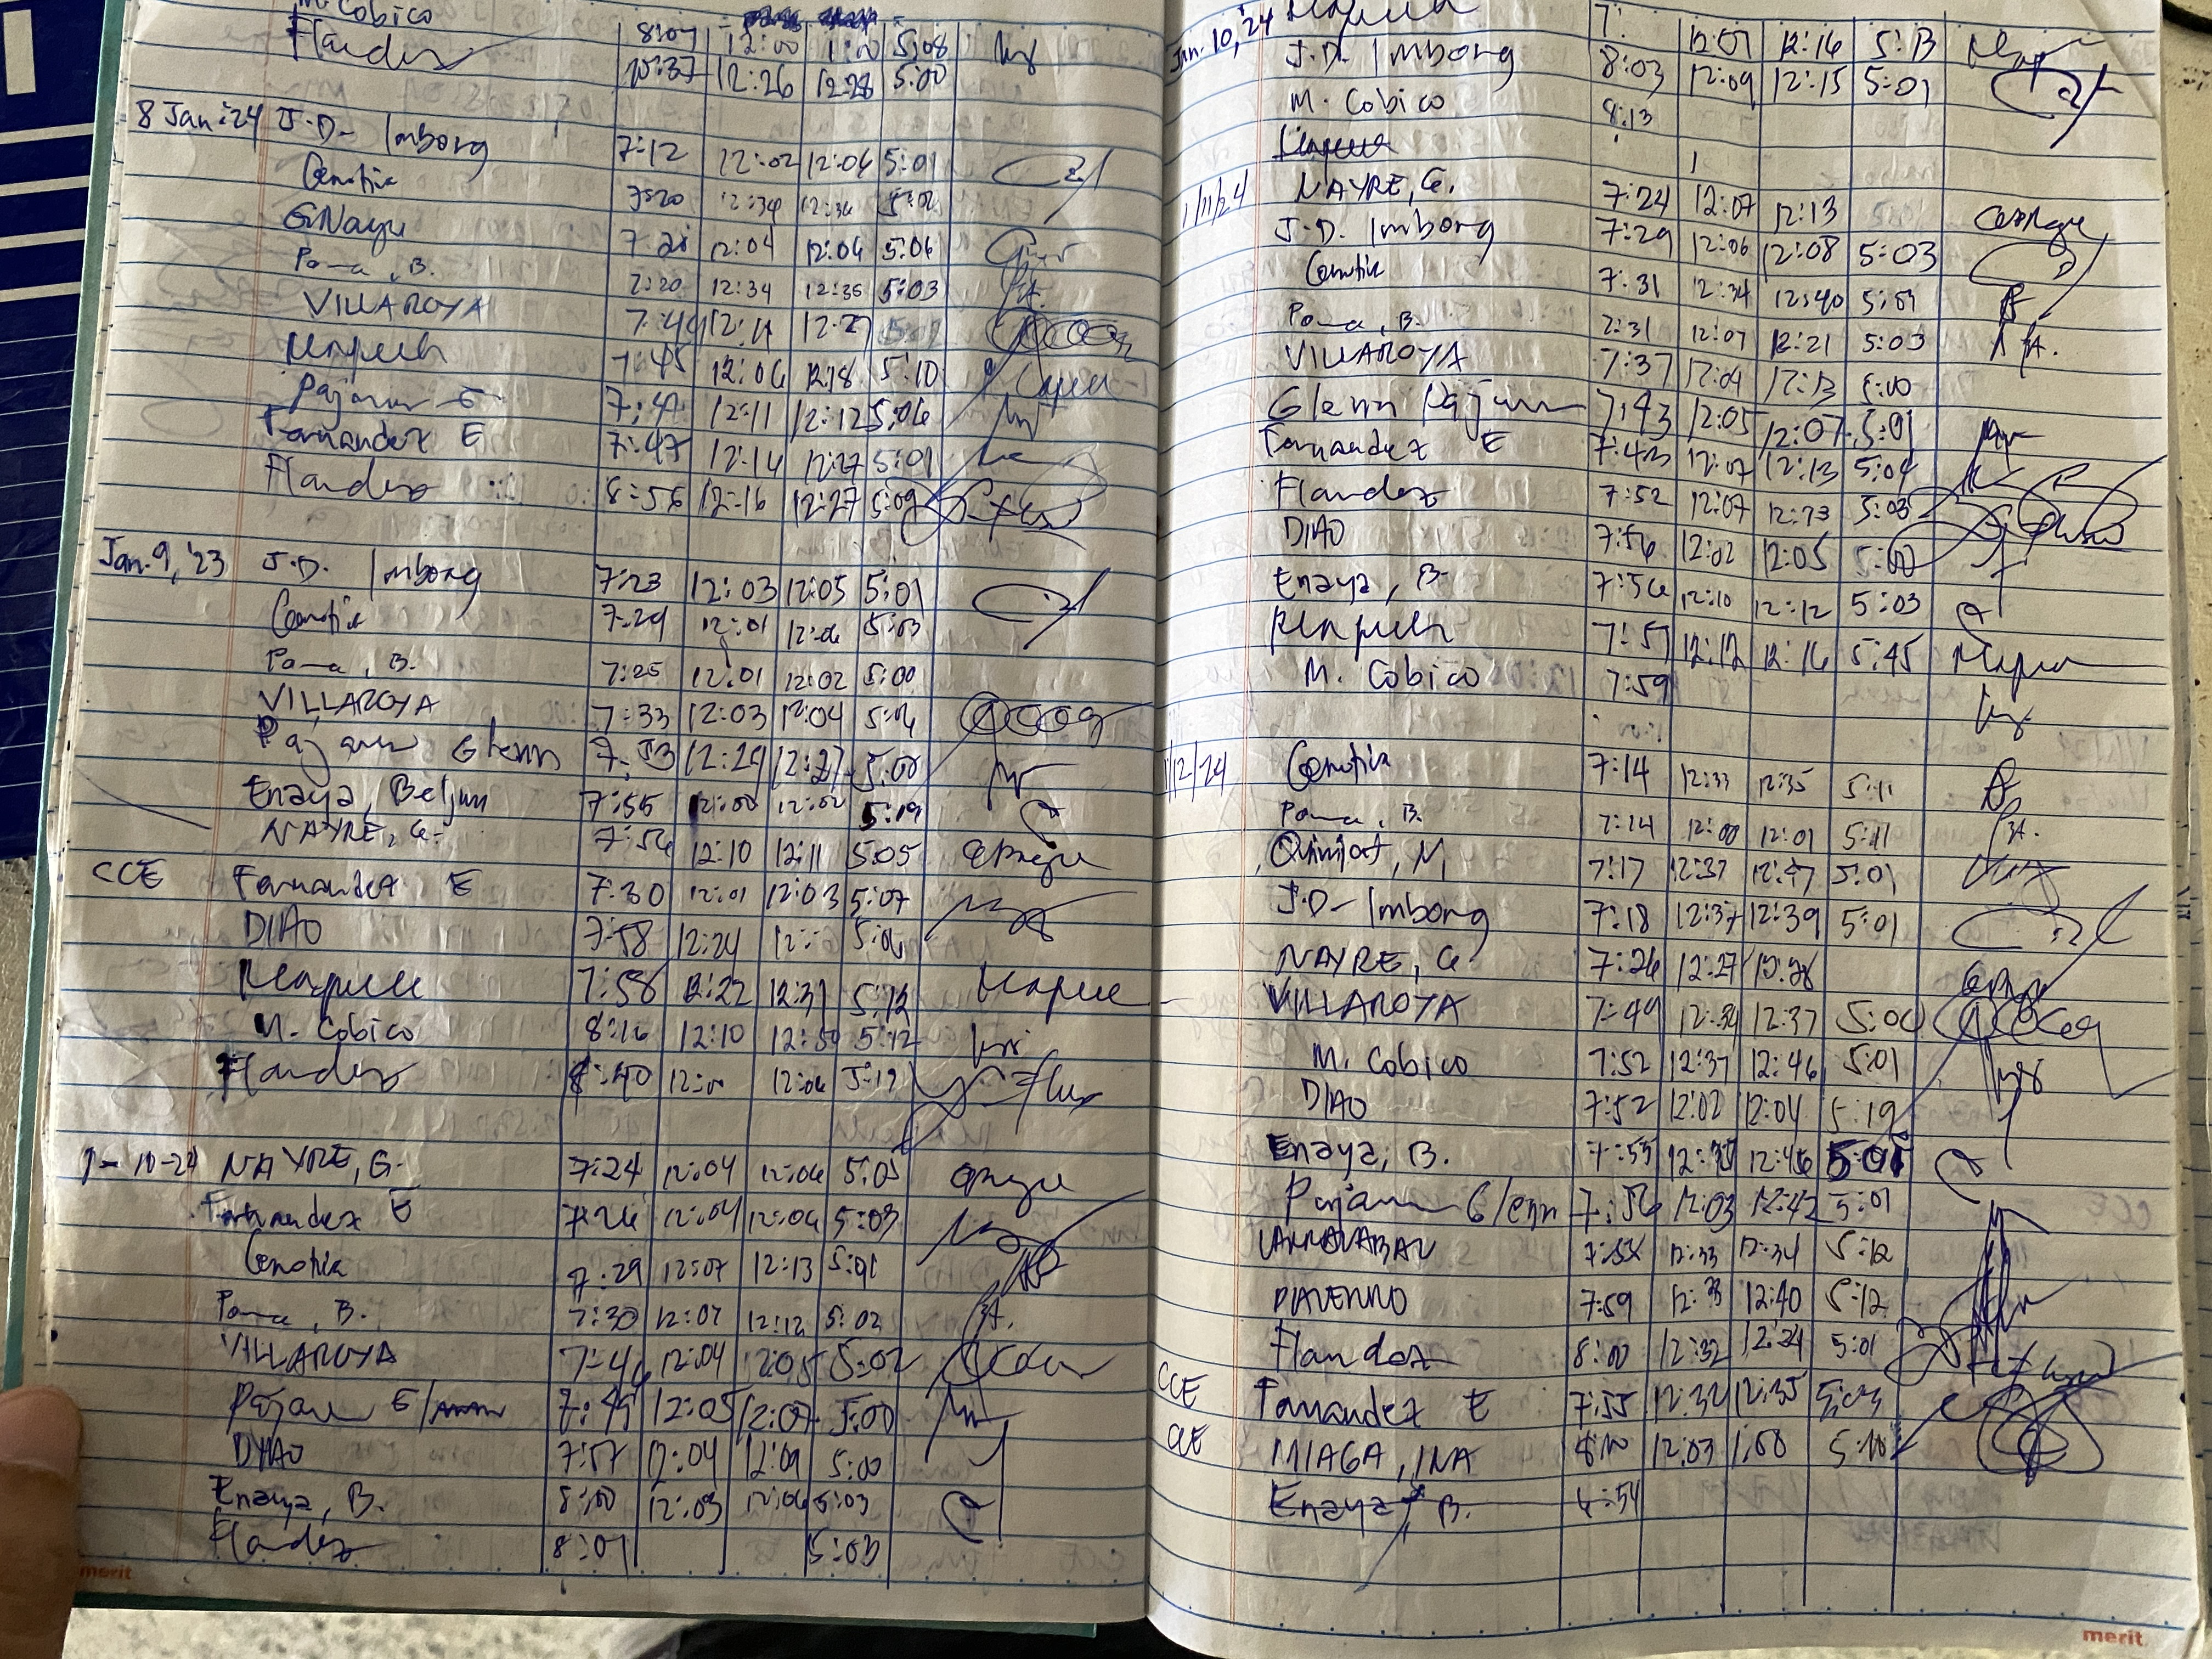 M. Cobico 8:04 12:00 1:00 5:08
Flandez 10:37 12:26 12:28 5:00
8 Jan '24 J.D. Imborg 7:12 12:02 12:06 5:01
Genotia 7:20 12:34 12:36 5:02
G. Nayre 7:28 12:04 12:06 5:06
Poma, B. 7:20 12:34 12:35 5:03
VILLAROYA 7:44 12:11 12:27
7:45 12:06 12:18 5:10
Pajarun G 7:47 12:11 12:12 5:06
Fernandez E 7:47 12:14 12:27 5:01
Flandez 8:56 12:16 12:27 5:09
Jan. 9, '23 J.D. Imborg 7:23 12:03 12:05 5:01
Genotia 7:29 12:01 12:06 5:03
Poma, B. 7:25 12:01 12:02 5:00
VILLAROYA 7:33 12:03 12:04 5:06
Pajarun Glenn 7:53 12:29 12:27 5:00
Enaya, Beljun 7:55 12:00 12:02 5:19
NAYRE, G. 7:56 12:10 12:11 5:05
CCE Fernandez E 7:30 12:01 12:03 5:07
DIAO 7:58 12:24 12: 5:06
7:58 12:22 12:31 5:12
M. Cobico 8:16 12:10 12:50 5:12
Flandez 8:40 12:00 12:06 5:19
1-10-24 NAYRE, G. 7:24 12:04 12:06 5:05
Fernandez E 7:26 12:04 12:06 5:03
Genotia 7:29 12:07 12:13 5:01
Poma, B. 7:30 12:07 12:12 5:02
VILLAROYA 7:46 12:04 12:05 5:02
Pajarun G 7:49 12:05 12:07 5:00
DIAO 7:57 12:04 12:09 5:00
Enaya, B. 8:00 12:03 12:06 5:03
Flandez 8:01 5:03
merit
Jan. 10, '24 7: 12:07 12:16 5:13
J.D. Imborg 8:03 12:09 12:15 5:01
M. Cobico 8:13
1/11/24 NAYRE, G. 7:24 12:07 12:13
J.D. Imborg 7:29 12:06 12:08 5:03
Genotia 7:31 12:34 12:40 5:01
Poma, B. 7:31 12:07 12:21 5:03
VILLAROYA 7:37 12:04 12:13 5:00
Glenn Pajarun 7:43 12:05 12:07 5:01
Fernandez E 7:43 12:07 12:13 5:04
Flandez 7:52 12:07 12:13 5:03
DIAO 7:56 12:02 12:05 5:00
Enaya, B. 7:56 12:10 12:12 5:03
7:57 12:12 12:16 5:45
M. Cobico 7:59
1/12/24 Genotia 7:14 12:33 12:35 5:11
Poma, B. 7:14 12:00 12:01 5:11
Quinjot, M 7:17 12:37 12:47 5:01
J.D. Imborg 7:18 12:37 12:39 5:01
NAYRE, G 7:26 12:27 12:28
VILLAROYA 7:49 12:34 12:37 5:00
M. Cobico 7:52 12:37 12:46 5:01
DIAO 7:52 12:02 12:04 5:19
Enaya, B. 7:55 12:35 12:46 5:01
Pajarun Glenn 7:56 12:03 12:42 5:01
7:58 12:33 12:34 5:12
7:59 12:33 12:40 5:12
Flandez 8:00 12:32 12:24 5:01
CCE Fernandez E 7:55 12:32 12:35 5:03
CCE MIAGA, INA 8:00 12:03 1:00 5:10
Enaya, B. 6:54
merit